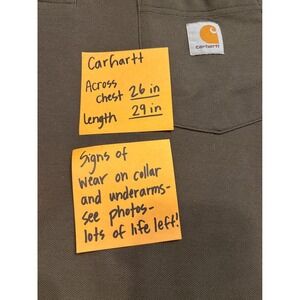 Carhartt
Across
chest 26 in
Length 29 in
carhartt
Signs of
wear on collar
and underarms-
see photos-
lots of life left!